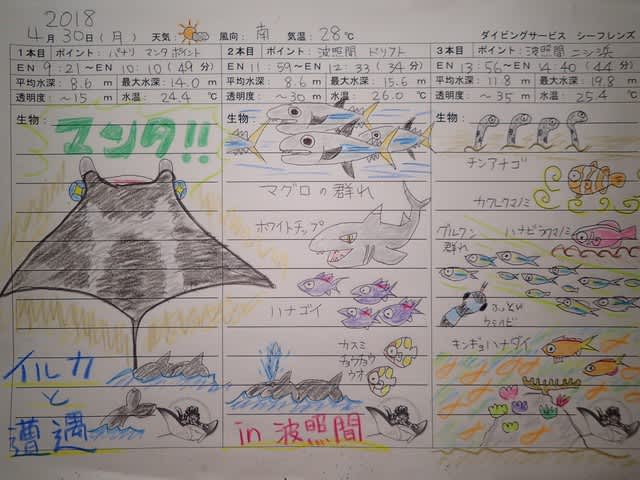 2018
4月30日(月) 天気: 風向: 南 気温: 28℃ ダイビングサービス シーフレンズ
1本目 ポイント: パナリ マンタポイント
EN 9:21~EN 10:10 (49分)
平均水深: 8.6 m 最大水深: 14.0 m
透明度: ~15 m 水温: 24.4 ℃
生物:
マンタ!!
イルカ
と
遭遇
2本目 ポイント: 波照間 ドリフト
EN 11:59~EN 12:33 (34分)
平均水深: 8.6 m 最大水深: 15.6 m
透明度: ~30 m 水温: 26.0 ℃
生物:
マグロの群れ
ホワイトチップ
ハナゴイ
カスミ
チョウチョウ
ウオ
in 波照間
3本目 ポイント: 波照間 ニシ浜
EN 13:56~EN 14:40 (44分)
平均水深: 11.8 m 最大水深: 19.8 m
透明度: ~35 m 水温: 25.4 ℃
生物:
チンアナゴ
カクレクマノミ
グルクン
群れ
ハナビラクマノミ
ウミヘビ
キンギョハナダイ